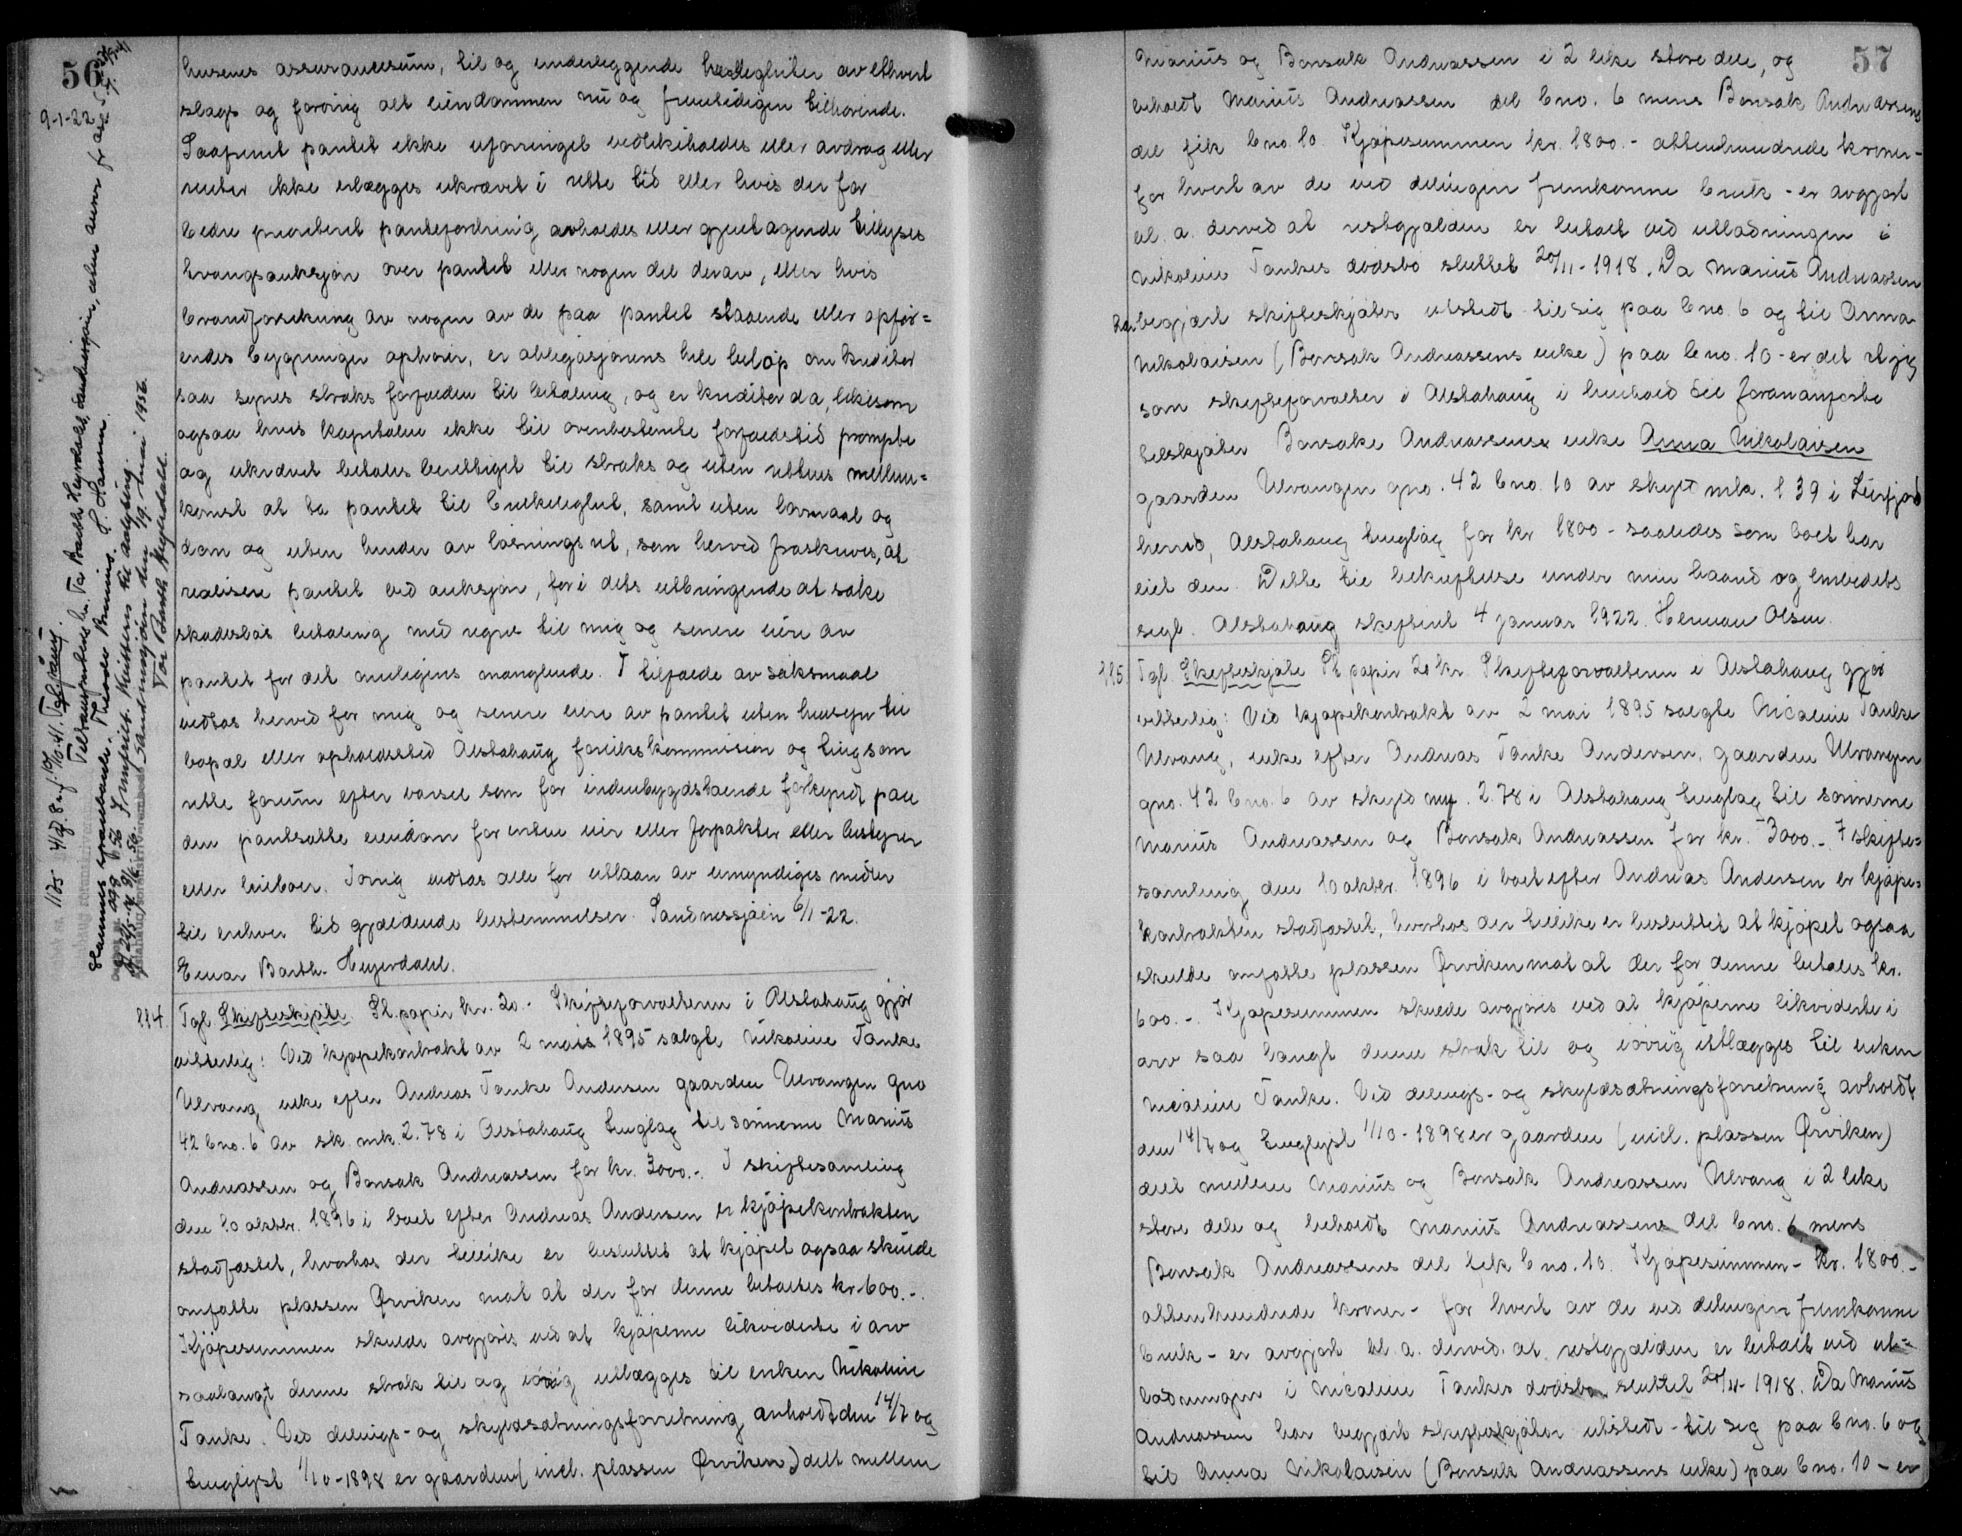 56
9-1-22
husenes assurancesum, til og underliggende herligheter av ethvert
slags og forøvrig alt eiendommen nu og fremtidigen tilhørende.
Saafremt pantet ikke uforringet vedlikeholdes eller avdrag eller
renter ikke erlægges ukrævet i rette tid eller hvis der for
bedre prioritert pantefordring avholdes eller gjentagende tillyses
tvangsauksjon over pantet eller nogen del derav, eller hvis
brandforsikring av nogen av de paa pantet staaende eller opfør=
endes bygninger ophører, er obligasjonens hele beløp om kreditor
saa synes straks forfalden til betaling, og er kreditor da, likesom
ogsaa hvis kapitalen ikke til ovenbestemte forfaldstid prompte
og ukrævet betales berettiget til straks og uten rettens mellem=
komst at ta pantet til brukelighet, samt uten lovmaal og
dom og uten hinder av løsningsret, som herved fraskrives, at
realisere pantet ved auksjon, for i dets utbringende at søke
skadesløs betaling med regres til mig og senere eiere av
pantet for det muligens manglende. I tilfælde av søksmaal
vedtas herved for mig og senere eiere av pantet uten hensyn til
bopæl eller opholdssted Alstahaug forlikskommission og ting som
rette forum efter varsel som for indenbygdsboende forkyndt paa
den pantsatte eiendom for enten eier eller forpakter eller bestyrer
eller leieboer. Iøvrig vedtas alle for utlaan av umyndiges midler
til enhver tid gjældende bestemmelser. Sandnessjøen 6/1-22.
Einar Barth-Heyerdahl.
114. Tgl. Skifteskjøte. St. papir kr. 20.- Skifteforvalteren i Alstahaug gjør
vitterlig: Ved kjøpekontrakt av 2 mai 1895 solgte Nikoline Tanke
Ulvang, enke efter Andreas Tanke Andersen gaarden Ulvangen gno
42 bno. 6 av sk. mk. 2.78 i Alstahaug tinglag til sønnerne Marius
Andreassen og Bonsak Andreassen for kr. 3000.-. I skiftesamling
den 10 oktbr. 1896 i boet efter Andreas Andersen er kjøpekontrakten
stadfæstet, hvorhos der tillike er besluttet at kjøpet ogsaa skulde
omfatte plassen Ørviken mot at der for denne betaltes kr. 600.-.
Kjøpesummen skulde avgjøres ved at kjøperne likviderte i arv
saalangt denne strak til og iøvrig utlægges til enken Nikoline
Tanke. Ved delings- og skyldsætningsforretning avholdt den 14/7 og
tinglyst 1/10-1898 er gaarden (incl. plassen Ørviken) delt mellem
57
Marius og Bonsak Andreassen i 2 like store dele, og
beholdt Marius Andreassen del bno. 6 mens Bonsak Andreassens
del fik bno. 10. Kjøpesummen kr. 1800.- attenhundrede kroner-
for hvert av de ved delingen fremkomne bruk - er avgjort
bl. a. derved at restgjælden er betalt ved utlodningen i
Nikoline Tankes dødsbo sluttet 20/11-1918. Da Marius Andreassen
har begjært skifteskjøter utstedt til sig paa bno. 6 og til Anna
Nikolaisen (Bonsak Andreassens enke) paa bno. 10 - er det at jeg
som skifteforvalter i Alstahaug i henhold til forananførte
tilskjøter Bonsaks Andreassens enke Anna Nikolaisen
gaarden Ulvangen gno. 42 bno. 10 av skyld mk. 1 39 i Leirfjord
herred, Alstahaug tinglag for kr 1800 - saaledes som boet har
eiet den. Dette til bekræftelse under min haand og embedets
segl. Alstahaug skifteret 4 januar 1922. Herman Olsen.
115. Tgl. Skifteskjøte St. papir 20 kr. Skifteforvalteren i Alstahaug gjør
vitterlig: Ved kjøpekontrakt av 2 mai 1895 solgte Nicoline Tanke
Ulvang, enke efter Andreas Tanke Andersen, gaarden Ulvangen
gno. 42 bno. 6 av skyld mk. 2.78 i Alstahaug tinglag til sønnerne
Marius Andreassen og Bonsak Andreassen for kr. 3000.-. I skifte=
samling den 10 oktbr. 1896 i boet efter Andreas Andersen er kjøpe=
kontrakten stadfæstet, hvorhos der tillike er besluttet at kjøpet ogsaa
skulde omfatte plassen Ørviken mot at der for denne betales kr.
600.-. Kjøpesummen skulde avgjøres ved at kjøperne likviderte i
arv saa langt denne strak til og iøvrig utlægges til enken
Nicoline Tanke. Ved delings- og skyldsætningsforretning avholdt
den 14/7 og tinglyst 1/10-1898 er gaarden (incl. plassen Ørviken)
delt mellem Marius og Bonsak Andreassen Ulvang i 2 like
store dele og beholdt Marius Andreassens del bno. 6 mens
Bonsak Andreassens del fik bno. 10. Kjøpesummen - kr. 1800.-
attenhundrede kroner - for hvert av de ved delingen fremkomne
bruk - er avgjort bl. a. derved at restgjælden er betalt ved ut=
lodningen i Nicoline Tankes dødsbo sluttet 20/11-1918. Da Marius
Andreassen har begjært skifteskjøter utstedt - til sig paa bno. 6 og
til Anna Nikolaisen (Bonsak Andreassens enke) paa bno. 10 - er